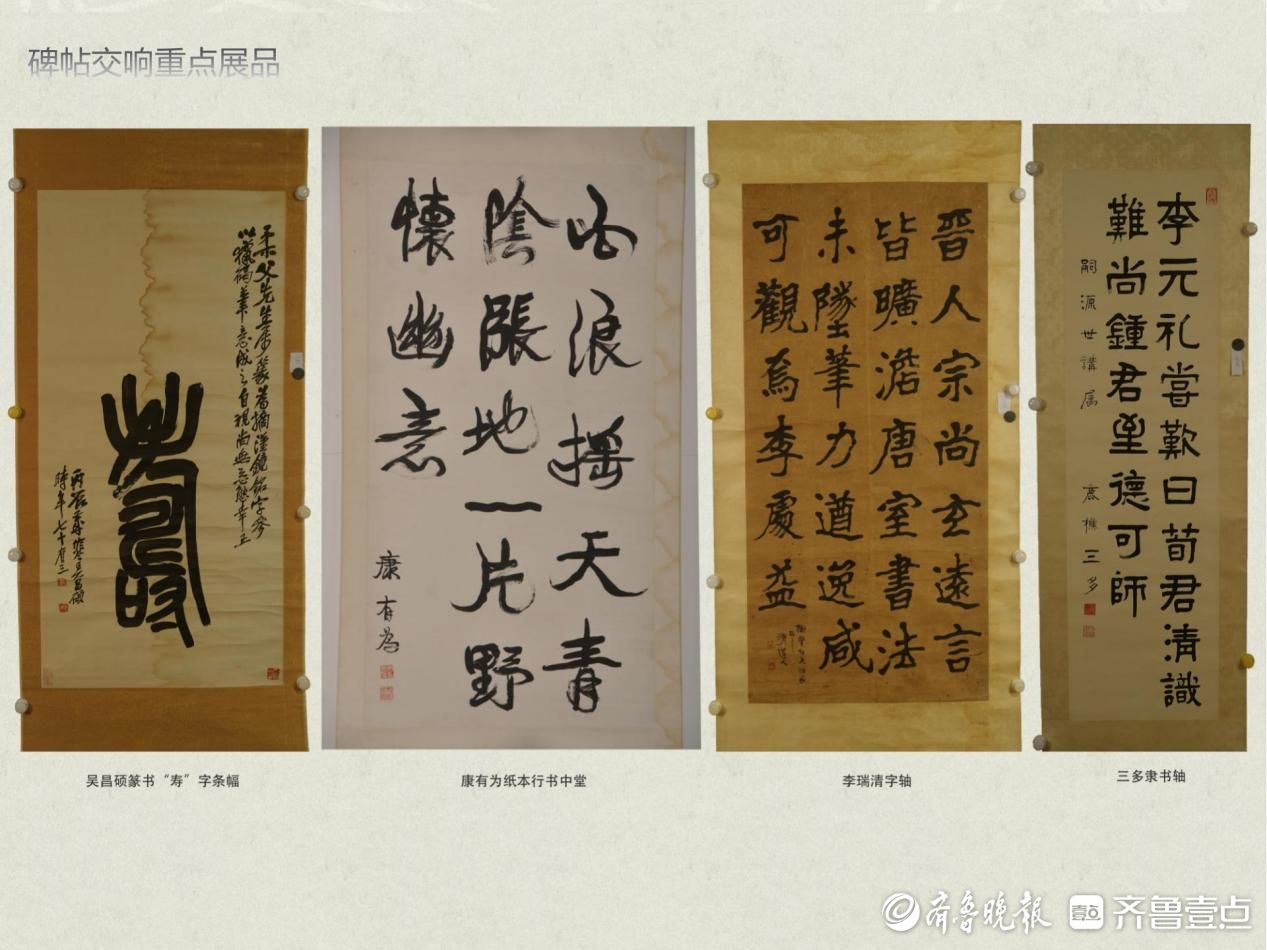 碑帖交响重点展品
以獵碣筆意成之自視尚無惡態幸正
時年七十有三
白浪搖天青
陰漲地一片野
懷幽意
康有為
晉人宗尚玄遠言
皆曠澹唐室書法
未墜筆力遒逸咸
可觀焉李處益
李元礼嘗歎曰荀君清識
難尚鍾君至德可師
嗣源世講属
鹿樵三多
吴昌硕篆书“寿”字条幅
康有为纸本行书中堂
李瑞清字轴
三多隶书轴
齐鲁晚报
壹点
齐鲁壹点